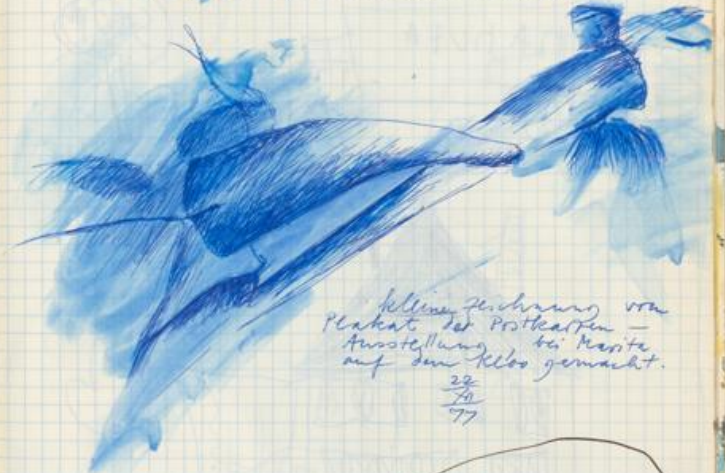 kleine Zeichnung vom
Plakat der Postkarten —
Ausstellung, bei Marita
auf dem Kloo gemacht.
22
VII
77